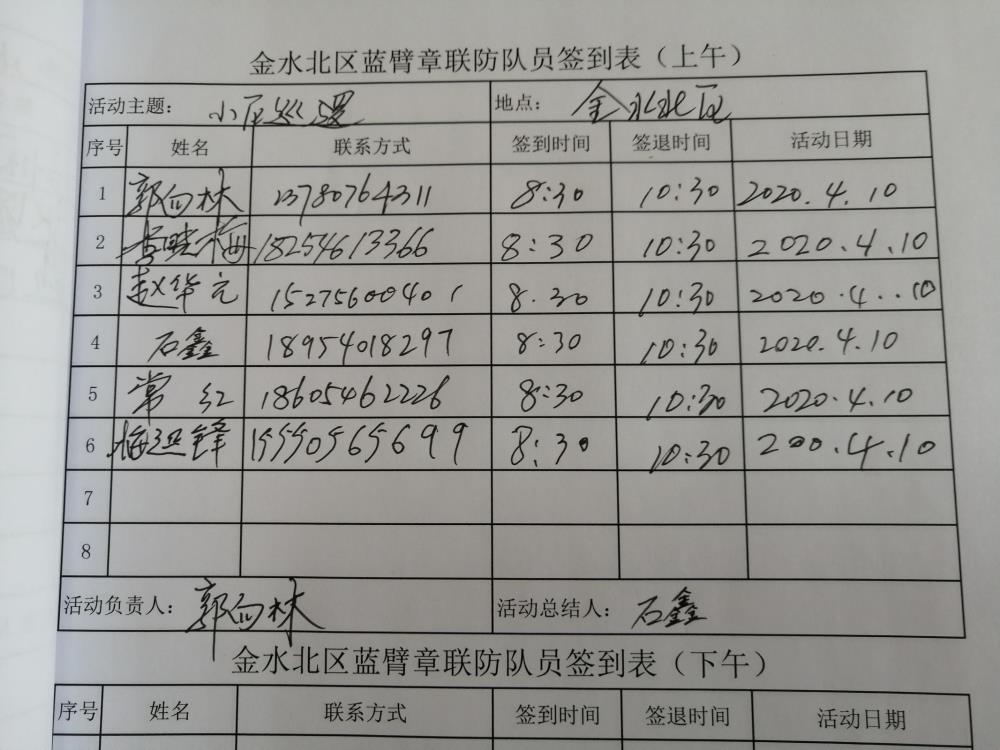 金水北区蓝臂章联防队员签到表（上午）
活动主题： 小区巡逻 地点： 金水北区
序号 姓名 联系方式 签到时间 签退时间 活动日期
1 郭向林 13780764311 8:30 10:30 2020.4.10
2 李晓梅 18254613366 8:30 10:30 2020.4.10
3 赵华元 15275600401 8.30 10:30 2020.4..10
4 石鑫 18954018297 8:30 10:30 2020.4.10
5 常红 18605462226 8:30 10:30 2020.4.10
6 梅迎锋 15550565699 8:30 10:30 200.4.10
7
8
活动负责人： 郭向林 活动总结人： 石鑫
金水北区蓝臂章联防队员签到表（下午）
序号 姓名 联系方式 签到时间 签退时间 活动日期